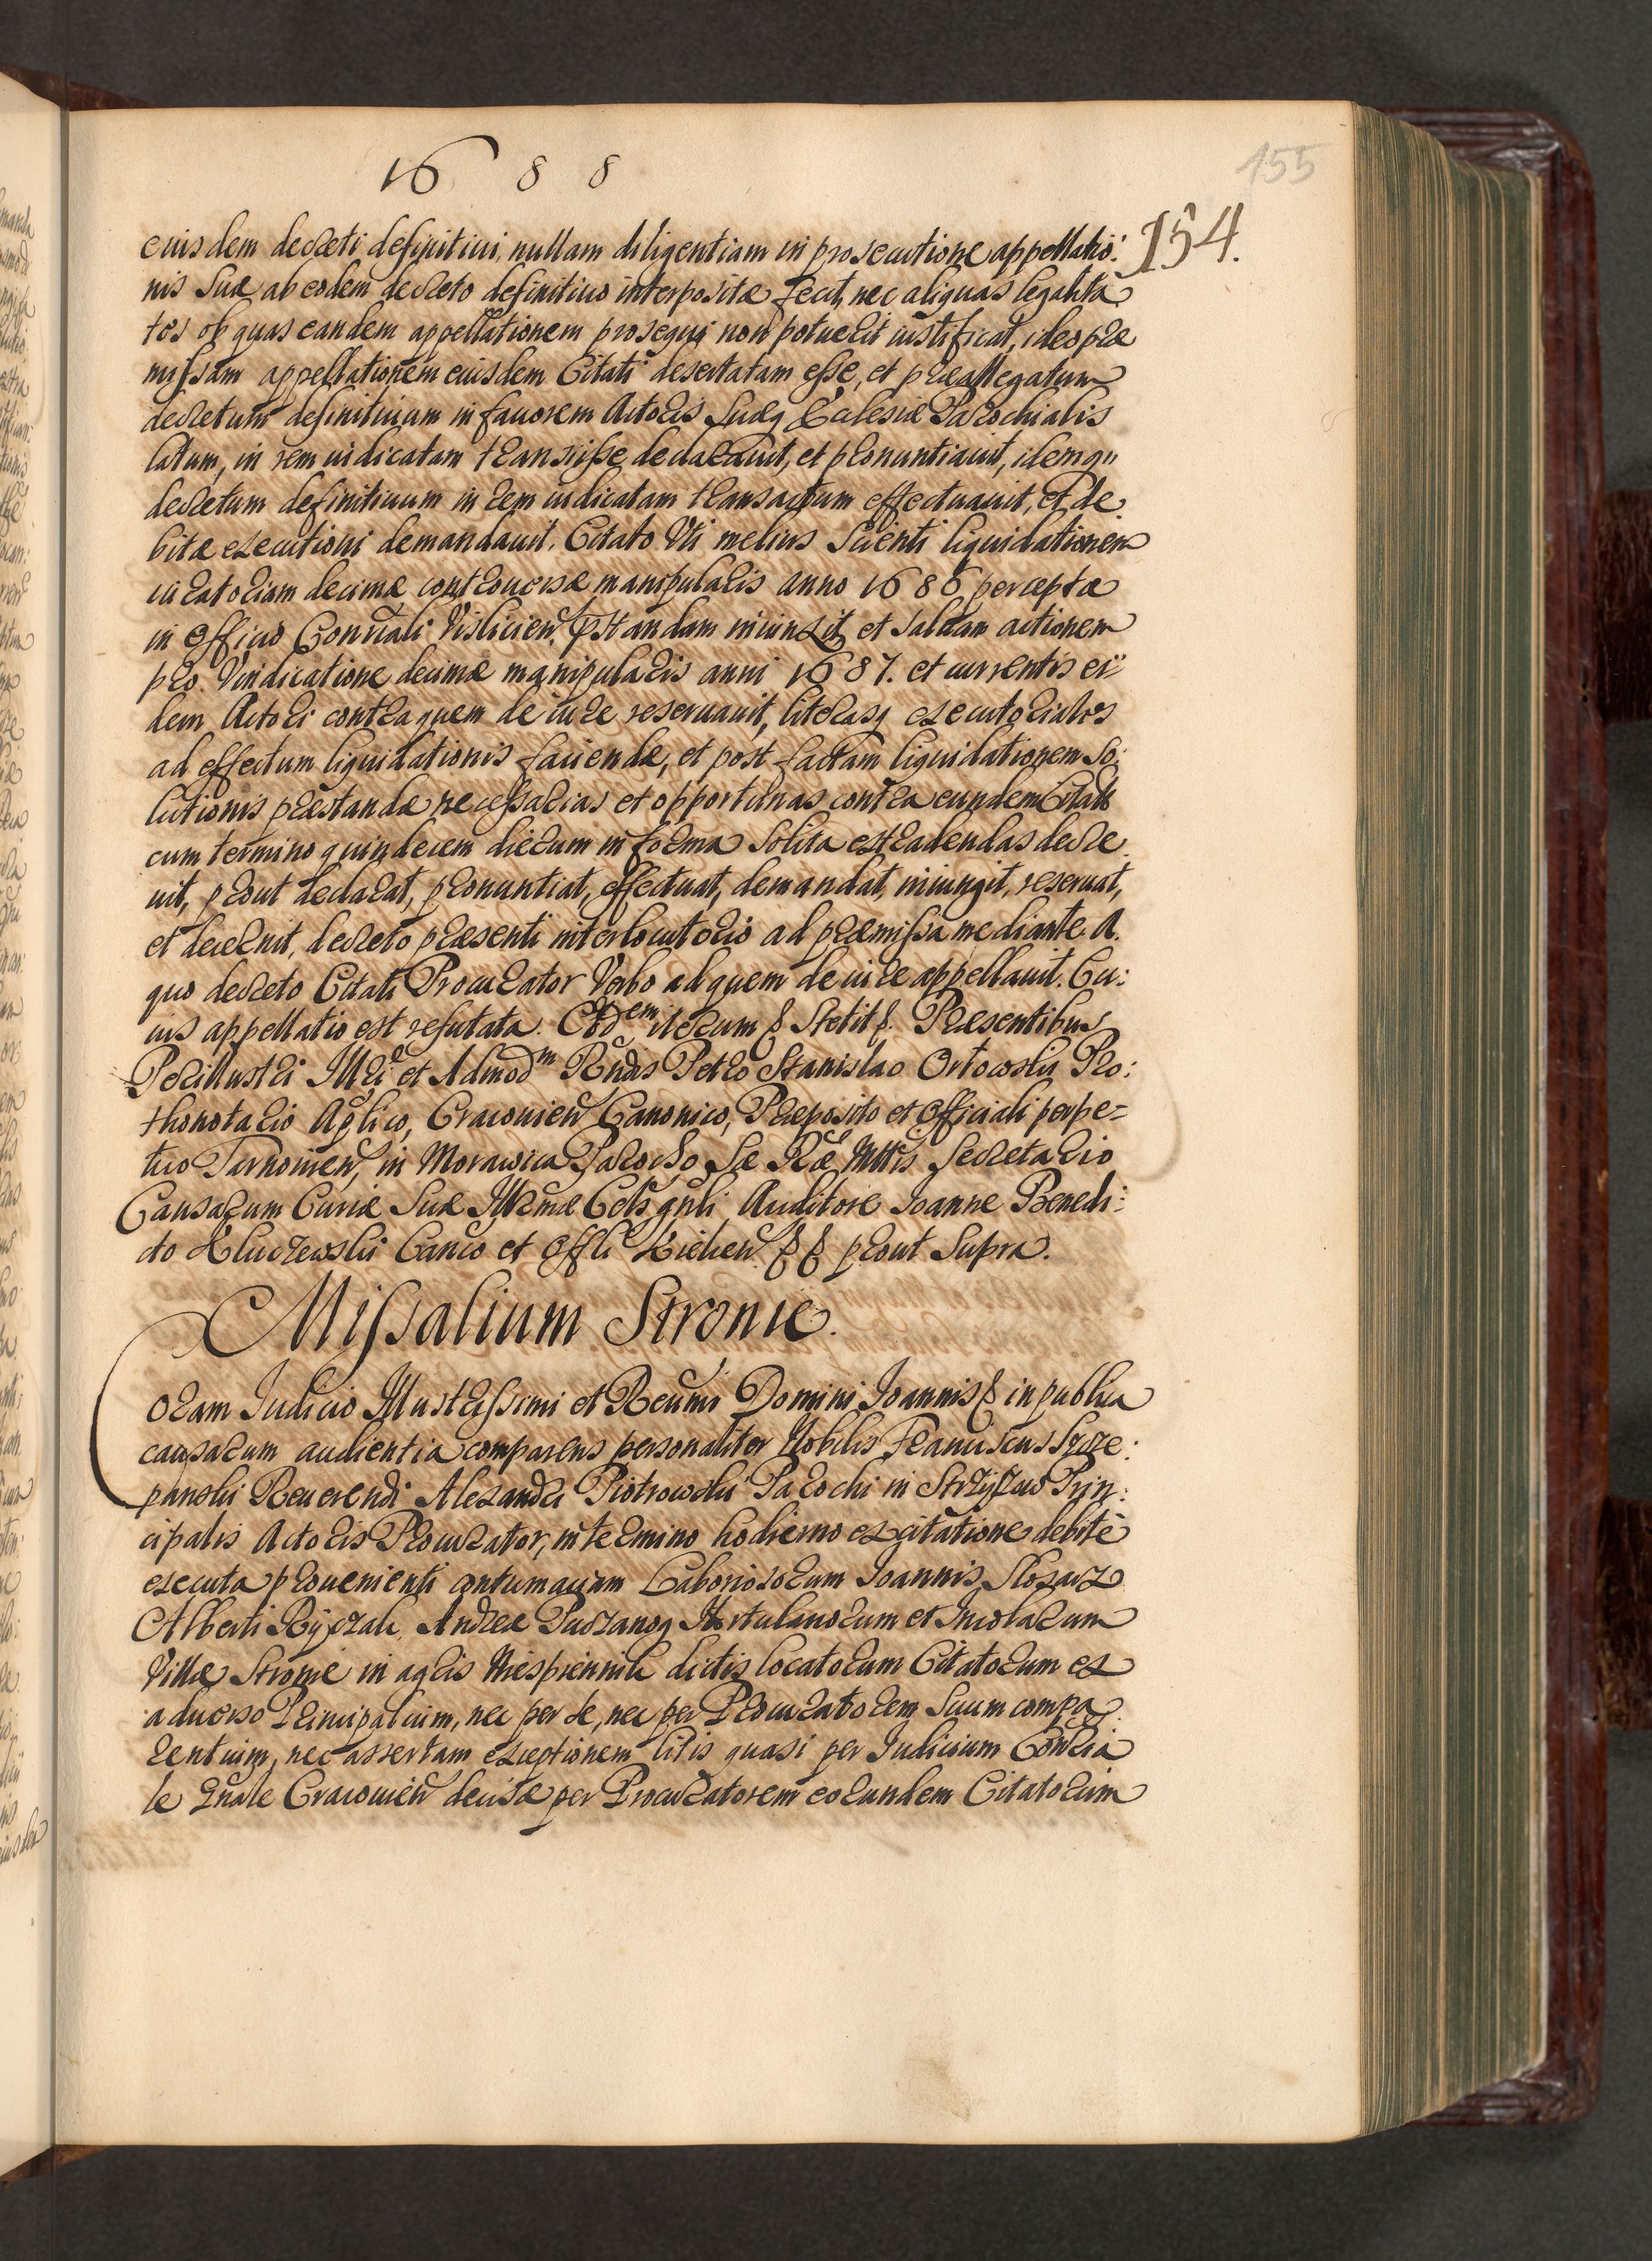 1688
155
154.
eiusdem decreti definitiui, nullam diligentiam in prosecutione appellatio:
nis suæ ab eodem decreto definitiuo interpositæ fecit, nec aliquas legalita
tes ob quas eandem appellationem prosequi non potuerit iustificat, ideo præ
missam appellationem eiusdem Citati desertatam esse, et præallegatum
decretum definitiuum in fauorem Actoris suæq Ecclesiæ Parochialis
latum, in rem iudicatam transiisse declarauit, et pronuntiauit, idemq
decretum definitiuum in rem iudicatam transactum effectuauit, et de
bitæ executioni demandauit. Citato Vti melius Scienti liquidationem
iuratoriam decimæ controuersæ manipularis anno 1686 perceptæ
in Officio Gonrali Vislicien. præstandam iniunxit, et saluam actionem
pro Vindicatione decimæ manipularis anni 1687. et currentis ei
dem Actori contra quem de iure reseruauit, literasq executoriales
ad effectum liquidationis faciendæ, et post factam liquidationem so:
lutionis præstandæ necessarias et opportunas contra eundem Citatū
cum termino quindecem dierum in forma solita extradendas decre
uit, prout declarat, pronuntiat, effectuat, demandat, iniungit, reseruat,
et decernit, decreto præsenti interlocutorio ad præmissa mediante. A
quo decreto Citati Procurator Verbo ad quem de iure appellauit. Cu:
ius appellatio est refutata. Ctdem iterum & Stetit &. Præsentibus
Perillustri Illri et Admodm Rndis Petro Stanislao Orłowski Pro:
thonotario Aplico, Cracouien Canonico, Præposito et Officiali perpe=
tuo Tarnouien, in Morawica Parocho Sæ Ræ Mttis Secretario
Causarum Curiæ suæ Illrmæ Cels gnli Auditore Ioanne Benedi:
cto Kluczewski Canco et Offli Kielcen. & & prout Supra.
Missalium Stronie.
Coram Iudicio Illustrissimi et Reumi Domini Ioannis & in publica
causarum audientia comparens personaliter Nobilis Franciscus Szcze:
panski Reuerendi Alexandri Piotrowski Parochi in Strzyzow Prin:
cipalis Actoris Procurator, in termino hodierno ex citatione debitè
executa prouenienti contumaciam Laboriosorum Ioannis Slosarz
Alberti Ryczak Andreæ Puszang Hortulanorum et Incolarum
Villæ Stronie in agris Niespiennik dictis locatorum Citatorum ex
aduerso Principalium, nec per se, nec per Procuratorem suum compa
rentium, nec assertam exceptionem litis quasi per Iudicium Consia
le Gnale Cracouien decisæ per Procuratorem eorundem Citatorum